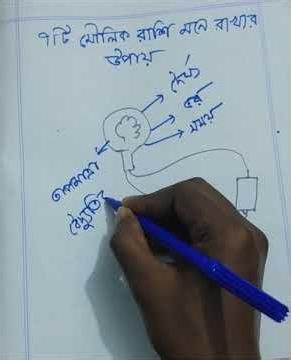 ৭টি মৌলিক রাশি মনে রাখার
উপায়
দৈর্ঘ্য
ভর
সময়
তাপমাত্রা
বৈদ্যুতি